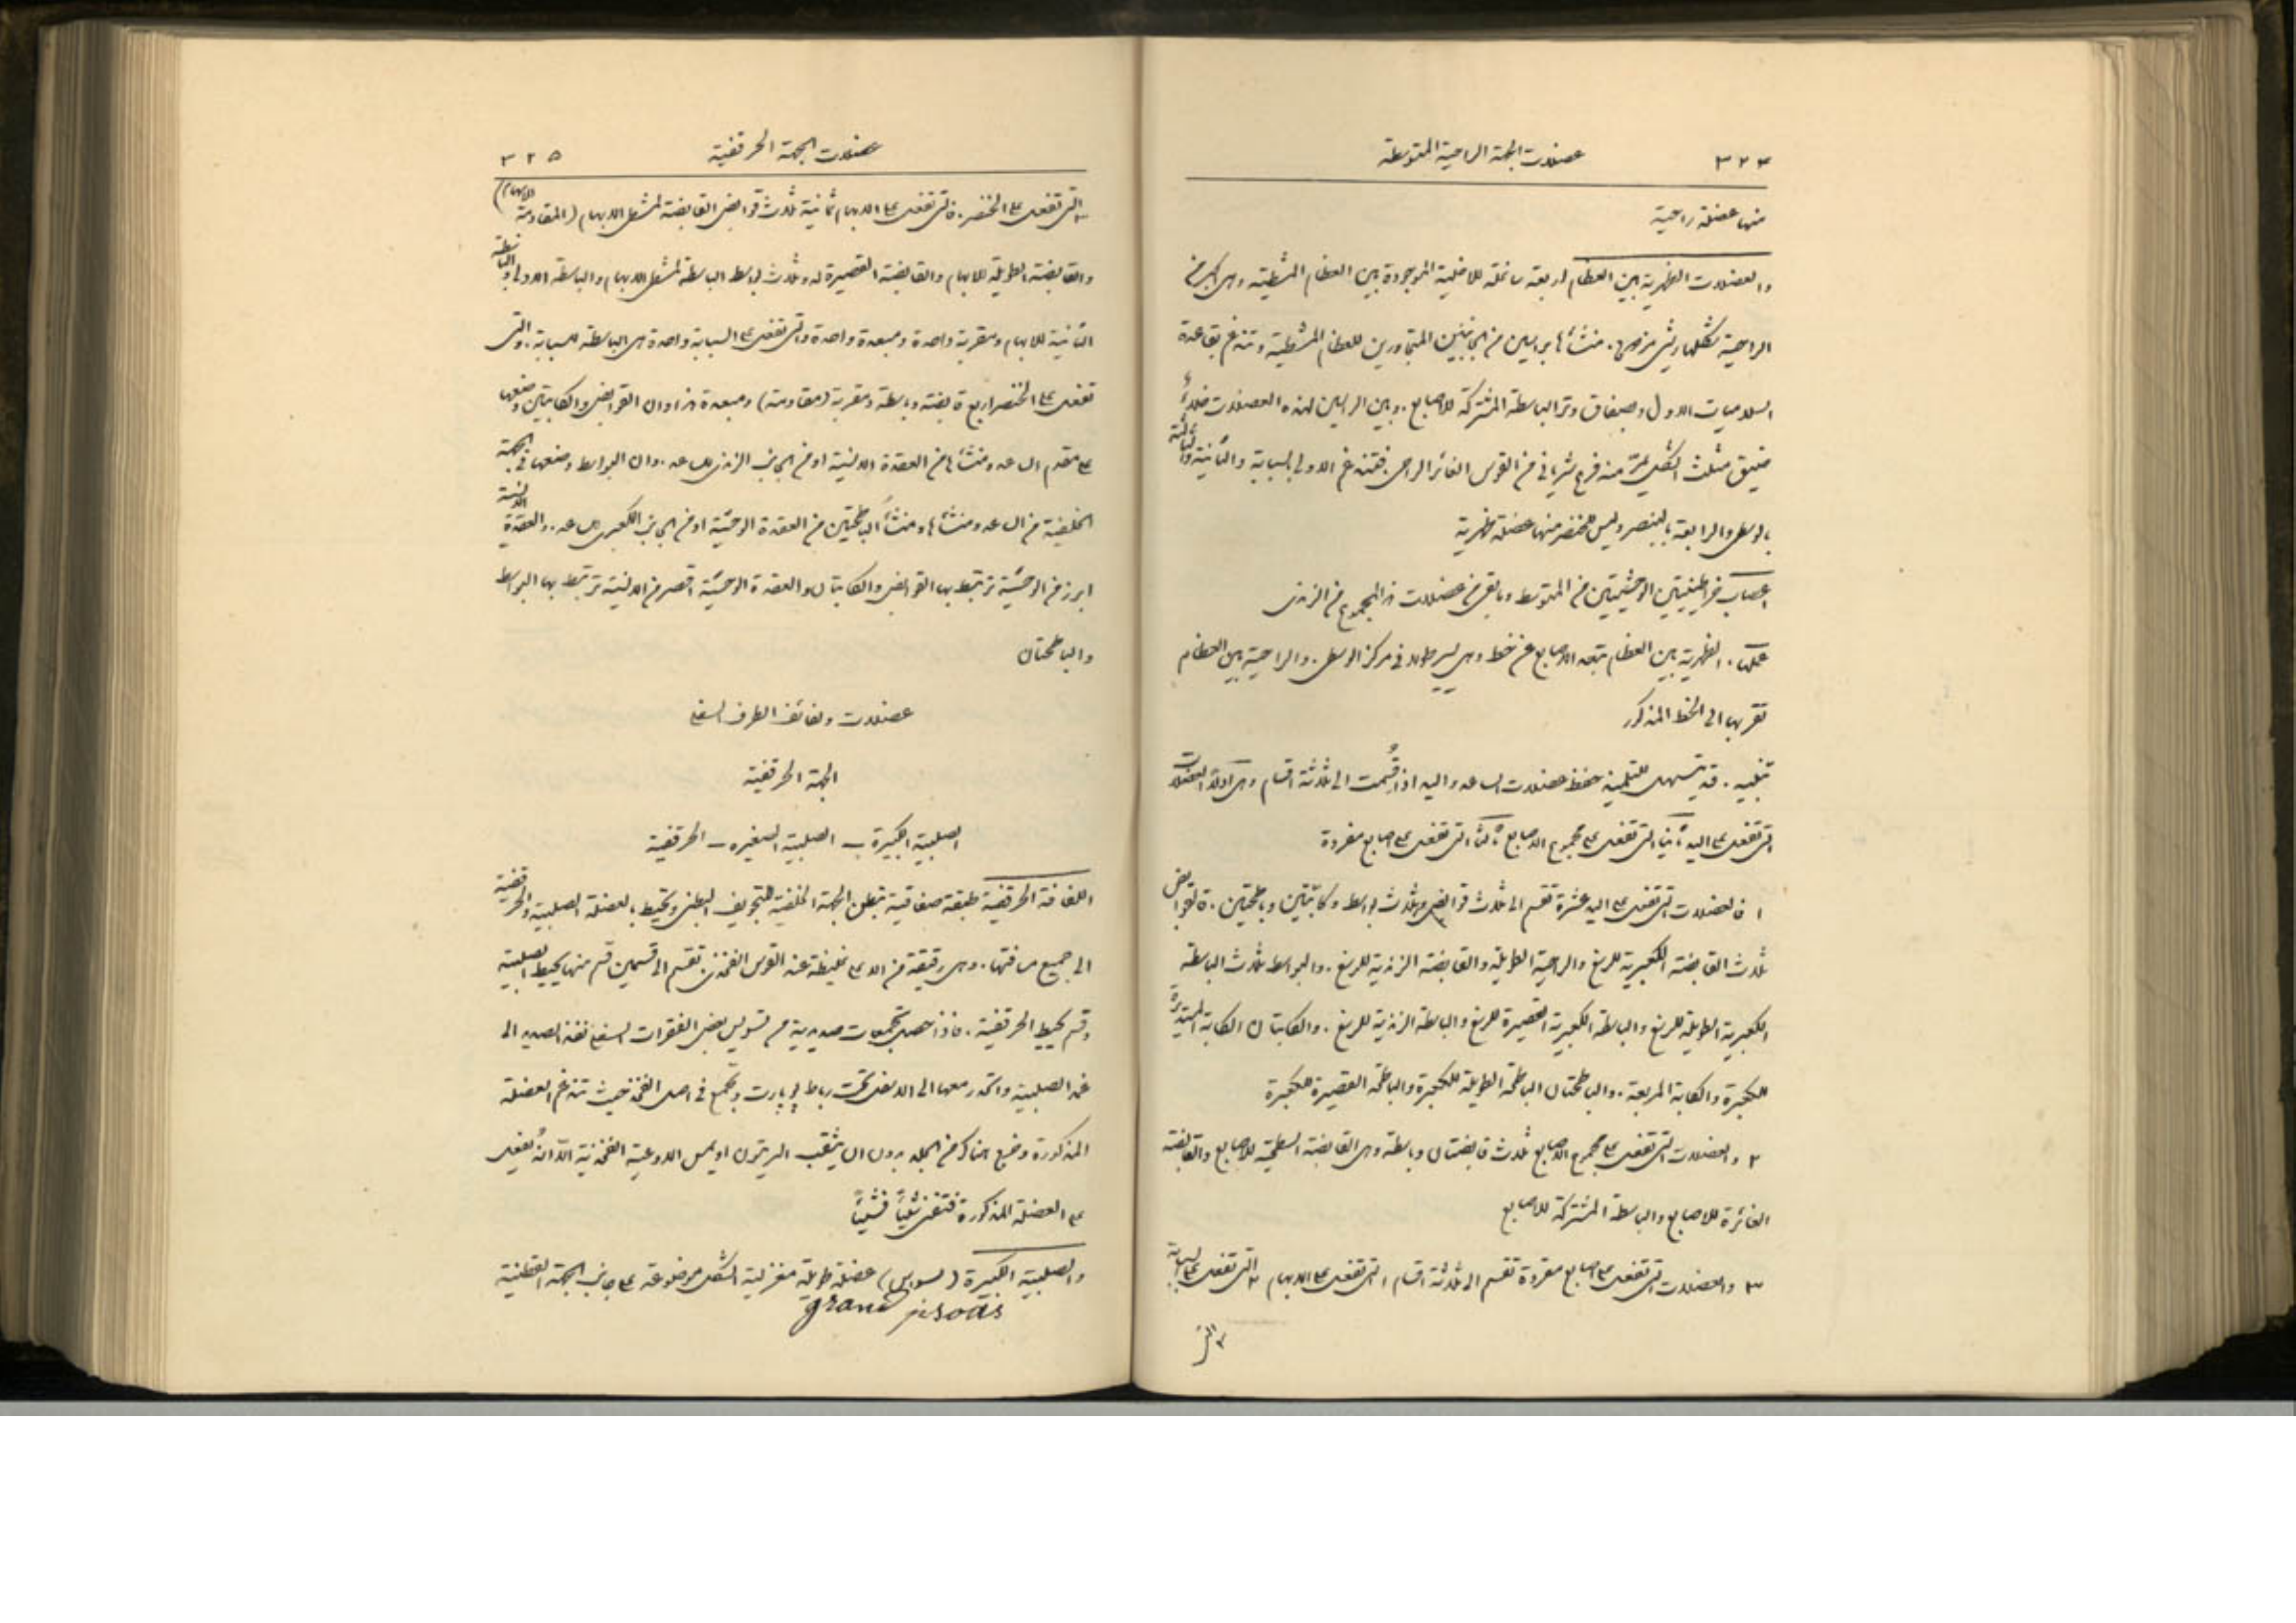 ٣٢٤ عضلات الجهة الراحية المتوسطة
منها عضلة راحية
والعضلات الظهرية بين العظام اربعة مائلة للاخلية الموجودة بين العظام المشطية وهي اكبر من
الراحية شكلها ريشي مزدوج. منشأها براسين من الجانبين المتجاورين للعظام المشطية وتندغم بقاعدة
السلاميات الاول وبصفاق وتر الباسطة المشتركة للاصابع. وبين الراسين لهذه العضلات خلاء
ضيق مثلث الشكل يمرّ منه فرع شرياني من القوس الغائر الراحي. فتندغم الاولى بالسبابة والثانية والثالثة
بالوسطى والرابعة بالبنصر وليس للخنصر منها عضلة ظهرية
اعصاب الخراطينيتين الوحشيتين من المتوسط وما بقي من عضلات هذا المجموع من الزندي
عملها. الظهرية بين العظام تبعد الاصابع عن خط وهمي يسير طولاً في مركز الوسطى. والراحية بين العظام
تقربها الى الخط المذكور
تنبيه. قد يتسهل للتلميذ حفظ عضلات الساعد واليد اذا قُسمت الى ثلاثة اقسام وهي اولاً العضلات
التي تفعل على اليد ثانياً التي تفعل على مجموع الاصابع ثالثاً التي تفعل على اصابع مفردة
١ فالعضلات التي تفعل على اليد عشرة تقسم الى ثلاث قوابض وثلاث بواسط وكابّتين وباطحتين. فالقوابض
ثلاث القابضة الكعبرية للرسغ والراحية الطويلة والقابضة الزندية للرسغ. والبواسط ثلاث الباسطة
الكعبرية الطويلة للرسغ والباسطة الكعبرية القصيرة للرسغ والباسطة الزندية للرسغ. والكابتان الكابة المستديرة
للكعبرة والكابة المربعة. والباطحتان الباطحة الطويلة للكعبرة والباطحة القصيرة للكعبرة
٢ والعضلات التي تفعل على مجموع الاصابع ثلاث قابضتان وباسطة وهي القابضة السطحية للاصابع والقابضة
الغائرة للاصابع والباسطة المشتركة للاصابع
٣ والعضلات التي تفعل على اصابع مفردة تقسم الى ثلاثة اقسام ١ التي تفعل على الابهام ٢ التي تفعل على السبابة
٣ التي
عضلات الجهة الحرقفية ٣٢٥
٣ التي تفعل على الخنصر. فالتي تفعل على الابهام ثمانية ثلاث قوابض القابضة لمشط الابهام (المقاومة للابهام)
والقابضة الطويلة للابهام والقابضة القصيرة له وثلاث بواسط الباسطة لمشط الابهام والباسطة الاولى والباسطة
الثانية للابهام ومقربة واحدة ومبعدة واحدة والتي تفعل على السبابة واحدة هي الباسطة للسبابة. والتي
تفعل على الخنصر اربع قابضة وباسطة ومقربة (مقاومة) ومبعدة هذا وان القوابض والكابتين وضعها
على مقدم الساعد ومنشأها من العقدة الانسية او من الجانب الزندي للساعد. وان البواسط وضعها في الجهة
الخلفية من الساعد ومنشأها ومنشأ الباطحتين من العقدة الوحشية او من الجانب الكعبري للساعد. والعقدة الانسية
ابرز من الوحشية ترتبط بها القوابض والكابتان والعقدة الوحشية اقصر من الانسية ترتبط بها البواسط
والباطحتان
عضلات ولفائف الطرف السفلي
الجهة الحرقفية
الصلبية الكبيرة – الصلبية الصغيرة – الحرقفية
اللفافة الحرقفية طبقة صفاقية تبطن الجهة الخلفية للتجويف البطني وتحيط بالعضلة الصلبية والحرقفية
الى جميع مسافتها. وهي رقيقة من الاعلى غليظة عند القوس الفخذي. تقسم الى قسمين قسم منها يحيط بالصلبية
وقسم يحيط الحرقفية. فاذا حصل تجمعات صديدية من تسويس بعض الفقرات السفلى نفذ الصديد الى
غمد الصلبية وانحدر معها الى الاسفل تحت رباط بوبارت وتجمع في اصل الفخذ حيث تندغم العضلة
المذكورة وخرج هناك من الجلد بدون ان يثقب البريتون او يمس الاوعية الفخذية الّا انهُ يفعل
على العضلة المذكورة فتفنى شيئاً فشيئاً
والصلبية الكبيرة (بسواس) عضلة طويلة مغزلية الشكل موضوعة على جانب الجهة القطنية
grand psoas